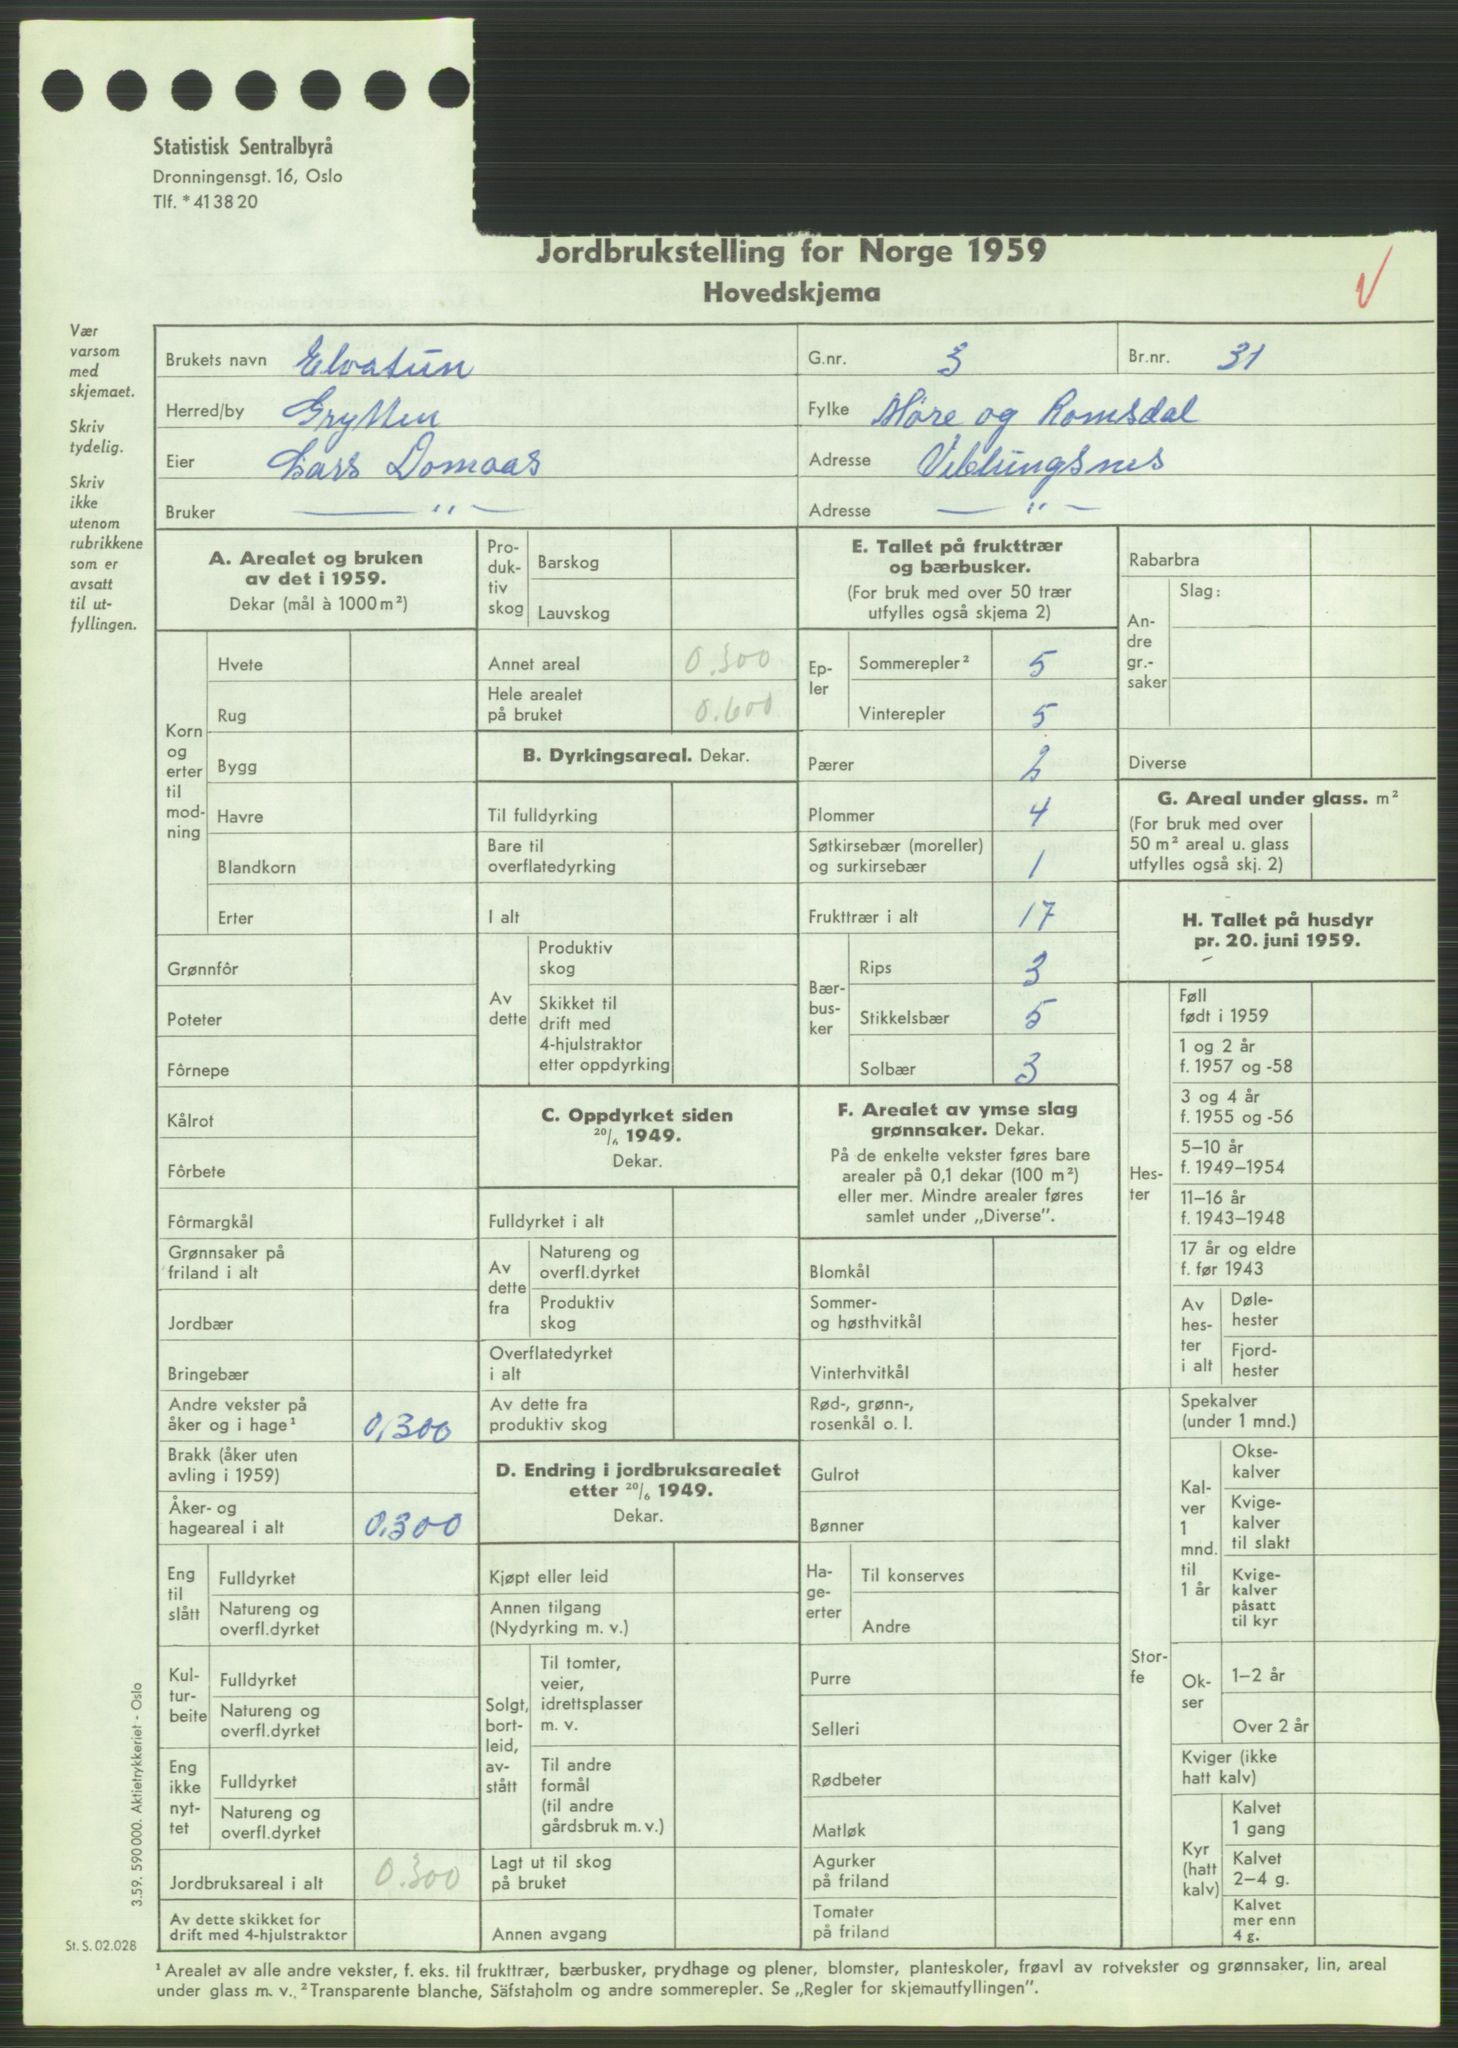 Statistisk Sentralbyrå
Dronningensgt. 16, Oslo
Tlf. * 41 38 20
Jordbrukstelling for Norge 1959
Hovedskjema
Vær
varsom
med
skjemaet.
Skriv
tydelig.
Skriv
ikke
utenom
rubrikkene
som er
avsatt
til ut-
fyllingen.
Brukets navn Elvatun G.nr. 3 Br.nr. 31
Herred/by Grytten Fylke Møre og Romsdal
Eier Lars Domaas Adresse Veblungsnes
Bruker — " — Adresse — " —
A. Arealet og bruken
av det i 1959.
Dekar (mål à 1000 m²)
Korn
og
erter
til
mod-
ning
Hvete
Rug
Bygg
Havre
Blandkorn
Erter
Grønnfôr
Poteter
Fôrnepe
Kålrot
Fôrbete
Fôrmargkål
Grønnsaker på
friland i alt
Jordbær
Bringebær
Andre vekster på
åker og i hage¹ 0,300
Brakk (åker uten
avling i 1959)
Åker- og
hageareal i alt 0.300
Eng
til
slått
Fulldyrket
Natureng og
overfl.dyrket
Kul-
tur-
beite
Fulldyrket
Natureng og
overfl.dyrket
Eng
ikke
nyt-
tet
Fulldyrket
Natureng og
overfl.dyrket
Jordbruksareal i alt 0.300
Av dette skikket for
drift med 4-hjulstraktor
Pro-
duk-
tiv
skog
Barskog
Lauvskog
Annet areal 0.300
Hele arealet
på bruket 0.600
B. Dyrkingsareal. Dekar.
Til fulldyrking
Bare til
overflatedyrking
I alt
Av
dette
Produktiv
skog
Skikket til
drift med
4-hjulstraktor
etter oppdyrking
C. Oppdyrket siden
20/6 1949.
Dekar.
Fulldyrket i alt
Av
dette
fra
Natureng og
overfl.dyrket
Produktiv
skog
Overflatedyrket
i alt
Av dette fra
produktiv skog
D. Endring i jordbruksarealet
etter 20/6 1949.
Dekar.
Kjøpt eller leid
Annen tilgang
(Nydyrking m. v.)
Solgt,
bort-
leid,
av-
stått
Til tomter,
veier,
idrettsplasser
m. v.
Til andre
formål
(til andre
gårdsbruk m. v.)
Lagt ut til skog
på bruket
Annen avgang
E. Tallet på frukttrær
og bærbusker.
(For bruk med over 50 trær
utfylles også skjema 2)
Ep-
ler
Sommerepler² 5
Vinterepler 5
Pærer 2
Plommer 4
Søtkirsebær (moreller)
og surkirsebær 1
Frukttrær i alt 17
Bær-
bus-
ker
Rips 3
Stikkelsbær 5
Solbær 3
F. Arealet av ymse slag
grønnsaker. Dekar.
På de enkelte vekster føres bare
arealer på 0,1 dekar (100 m²)
eller mer. Mindre arealer føres
samlet under „Diverse”.
Blomkål
Sommer-
og høsthvitkål
Vinterhvitkål
Rød-, grønn-,
rosenkål o. l.
Gulrot
Bønner
Ha-
ge-
erter
Til konserves
Andre
Purre
Selleri
Rødbeter
Matløk
Agurker
på friland
Tomater
på friland
Rabarbra
An-
dre
gr.-
saker
Slag:
Diverse
G. Areal under glass. m²
(For bruk med over
50 m² areal u. glass
utfylles også skj. 2)
H. Tallet på husdyr
pr. 20. juni 1959.
Hes-
ter
Føll
født i 1959
1 og 2 år
f. 1957 og -58
3 og 4 år
f. 1955 og -56
5–10 år
f. 1949–1954
11–16 år
f. 1943–1948
17 år og eldre
f. før 1943
Av
hes-
ter
i alt
Døle-
hester
Fjord-
hester
Stor-
fe
Spekalver
(under 1 mnd.)
Kal-
ver
1
mnd.
til
1 år
Okse-
kalver
Kvige-
kalver
til slakt
Kvige-
kalver
påsatt
til kyr
Ok-
ser
1–2 år
Over 2 år
Kviger (ikke
hatt kalv)
Kyr
(hatt
kalv)
Kalvet
1 gang
Kalvet
2–4 g.
Kalvet
mer enn
4 g.
3.59. 590 000. Aktietrykkeriet - Oslo
St. S. 02.028
¹ Arealet av alle andre vekster, f. eks. til frukttrær, bærbusker, prydhage og plener, blomster, planteskoler, frøavl av rotvekster og grønnsaker, lin, areal
under glass m. v. ² Transparente blanche, Säfstaholm og andre sommerepler. Se „Regler for skjemautfyllingen”.